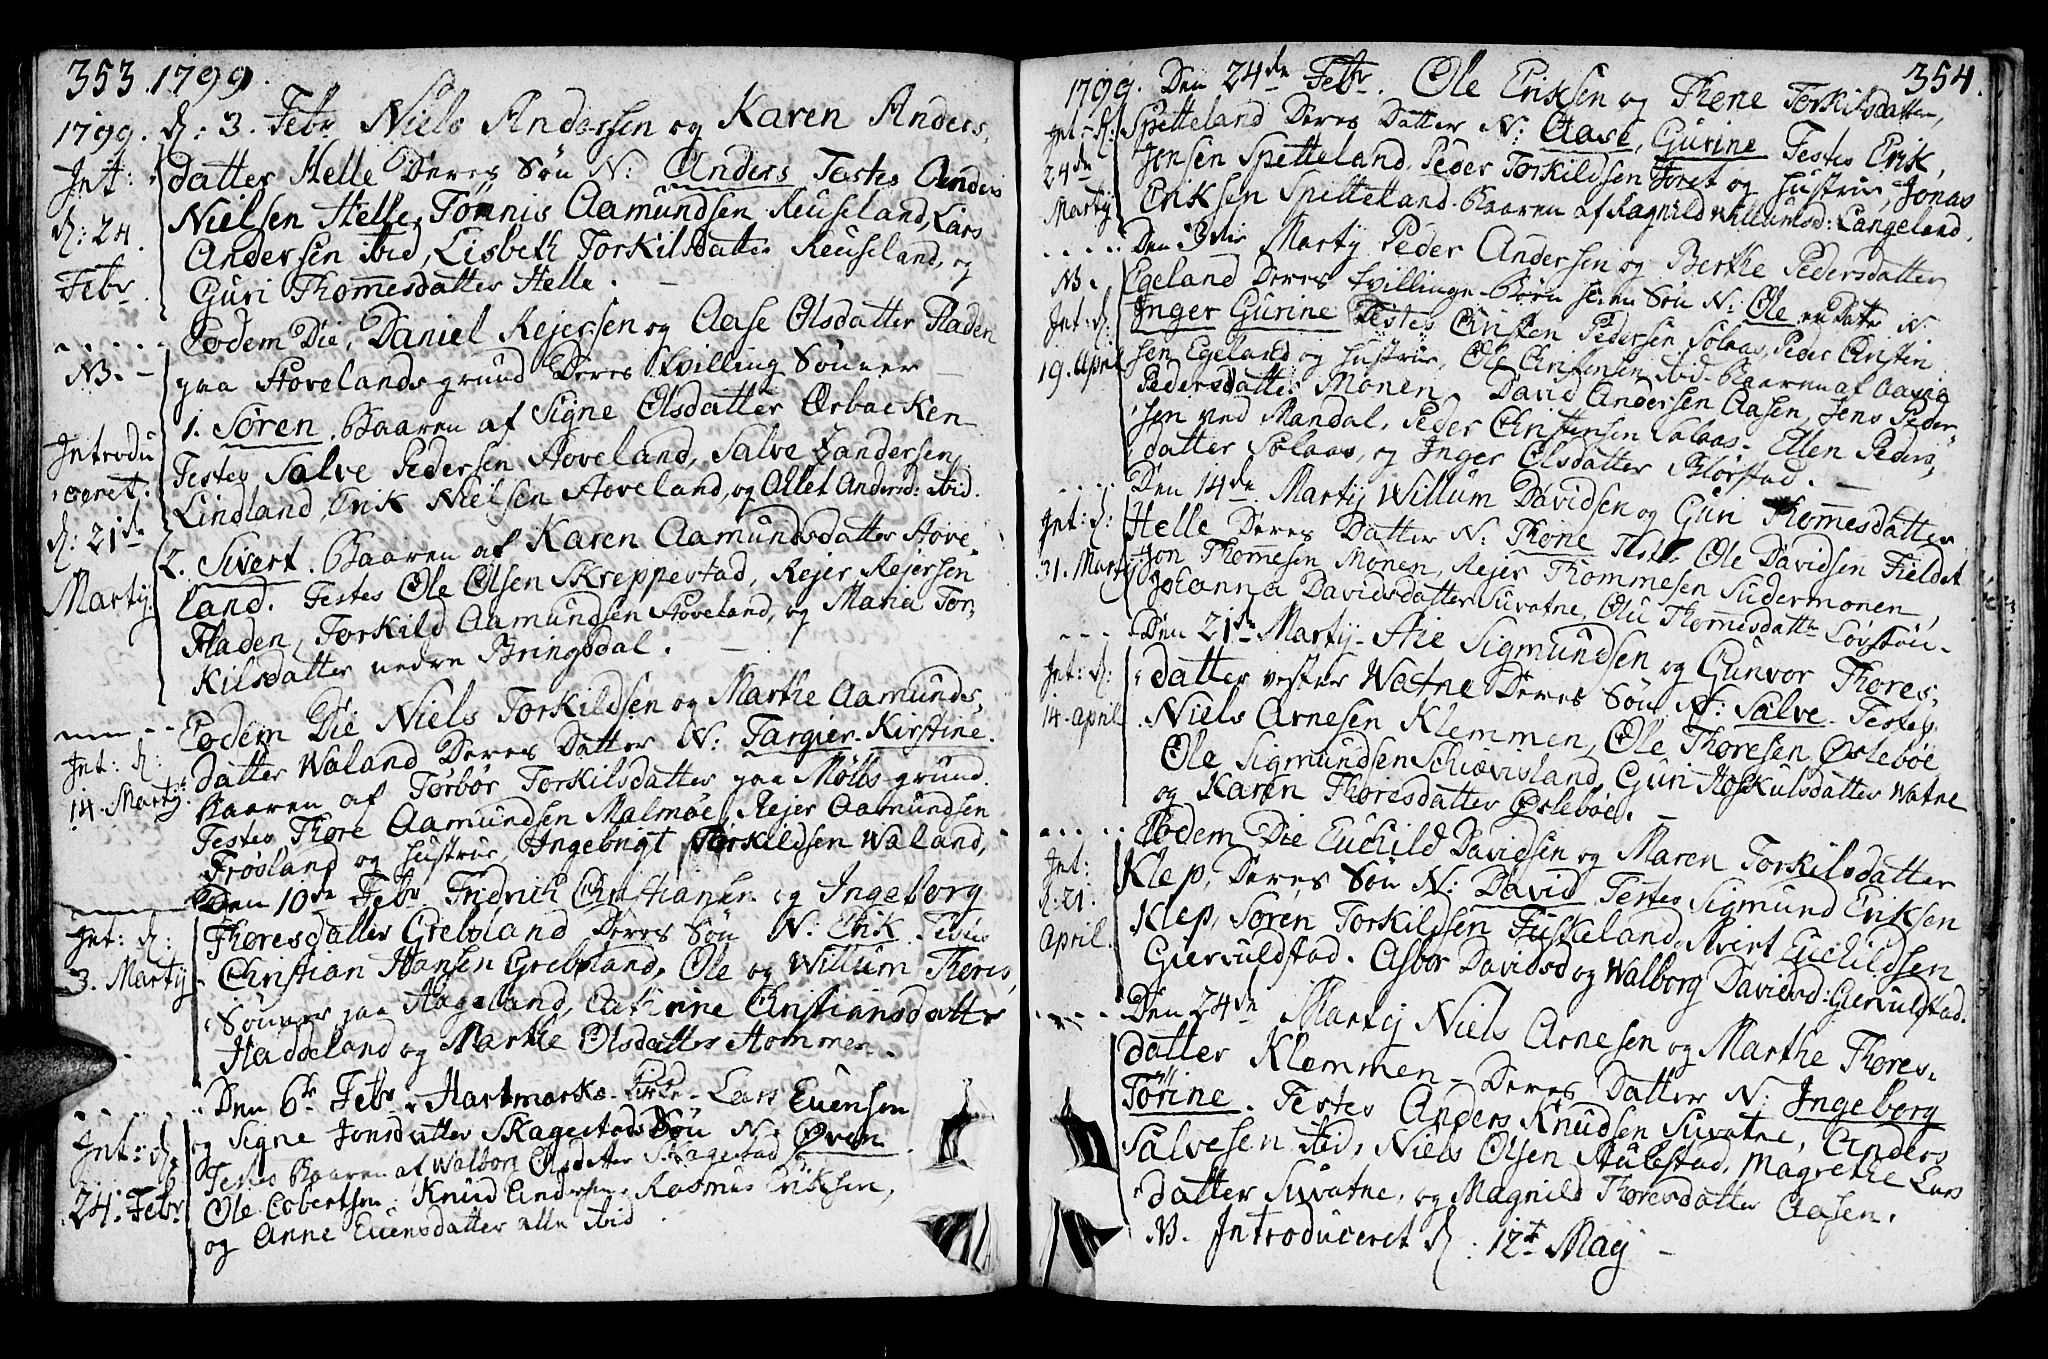 353. 1799.
1799. d: 3. Febr Niels Andersen og Karen Anders,
Int: datter Helle Deres Søn N: Anders Testes Anders
d: 24. Nielsen Helle, Tønnis Aamundsen Reuseland, Lars
Febr Andersen ibid, Lisbeth Torkilsdatter Reuseland, og
Guri Thomesdatter Helle.
Eodem Die, Daniel Rejersen og Aase Olsdatter Fladen
NB. paa Hovelands grund Deres tvilling Sønner
1. Søren. Baaren af Signe Olsdatter Ørbacken
Introdu Testes Salve Pedersen Hoveland, Salve Zandersen
ceret: Lindland, Erik Nielsen Hoveland, og Allet Andersd: ibid.
d: 21de 2. Sivert. Baaren af Karen Aamundsdatter Hove
Martij. land. Testes Ole Olsen Skreppestad, Rejer Rejersen
Fladen, Torkild Aamundsen Hoveland, og Maria Tor,
Kilsdatter nedre Bringsdal.
Eodem Die Niels Torkildsen og Marthe Aamunds,
Int: d: datter Waland Deres Datter N: Targier Kirstine.
14. Martij. Baaren af Torbor Torkilsdatter paa Mølls grund.
Testes Thore Aamundsen Malmøe, Rejer Aamundsen
Frøsland og Hustrue, Ingebrigt Torkildsen Waland,
Den 10de Febr Fridrich Christiansen og Ingeborg
Int: d: Thoresdatter Grebsland Deres Søn N: Erik Testes
3. Martij Christian Hansen Grebsland, Ole og Willum Thores,
Sønner paa Hageland, Cathrine Christiansdatter
Haddeland og Marthe Olsdatter Hommen.
Den 6te Febr i Hartmarks Kirke. Lars Evensen
Int: d: og Signe Jonsdatter Skagestad Søn N: Øven
24. Febr Testes Baaren af Walborg Olsdatter Skagestad
Ole Cobertsen, Knud Andersen, Rasmus Eriksen,
og Anne Evensdatter alle ibid.
354.
1799. Den 24de Febr. Ole Eriksen og Thone Torkilsdatter,
Int: d: Spetteland Deres Datter N: Aase, Gurine Testes Erik
24de Jensen Spetteland, Peder Torkildsen Foret og Hustrue, Jonas
Martij Eriksen Spetteland. Baaren af Ragnild Willumsd: Langeland.
Den 3die Martij Peder Andersen og Berthe Pedersdatter
NB. Egeland Deres tvillinge Børn Søn N: Ole en Dater N
Int: d: Inger Gurine Testes Christen Pedersen Solaas, Peder Christen
19. April sen Egeland og Hustrue, Ole Christensen ibid. Baaren af Aasia
Pedersdatter Monen. David Andersen Aasen, Jens Peder,
sen ved Mandal, Peder Christensen Solaas. Ellen Peders,
datter Solaas, og Inger Olsdatter Blørstad.
Den 14de Martij Willum Davidsen og Guri Thomesdatter
Int: d: Helle Deres Datter N: Thone Test: Ole Davidsen Fieldet
31. Martij Jon Thomesen Monen, Rejer Thommesen Sudermonen,
Johanna Davidsdatter Suvatne, Olu Thomesdattr Løvstøu.
Den 21de Martij. Atie Sigmundsen og Gunvor Thores,
Int: d: datter vester Watne Deres Søn N: Salve. Testes.
14. April Niels Arnesen Klemmen, Ole Thoresen Øslebøe
Ole Sigmundsen Schiævisland, Guri Hoskulsdatter Watne
og Karen Thoresdatter Øslebøe.
Eodem Die Euchild Davidsen og Maren Torkilsdatter
Int: Klep, Deres Søn N: David Testes Sigmund Eriksen
d: 21. Klep, Søren Torkildsen Fuskeland, Sivert Euchildsen
April. Giervuldstad. Asbor Davidsd og Walborg Davidsd: Giervuldstad.
Den 24de Martij Niels Arnesen og Marthe Thores,
datter Klemmen. Deres Datter N: Ingeborg
Torine. Testes Anders Knudsen Suvatne, Anders
Salvesen ibid, Niels Olsen Stulestad, Magrethe Lars
datter Suvatne, og Magnild Thoresdatter Aasen.
N. Introduceret d. 12t Maij